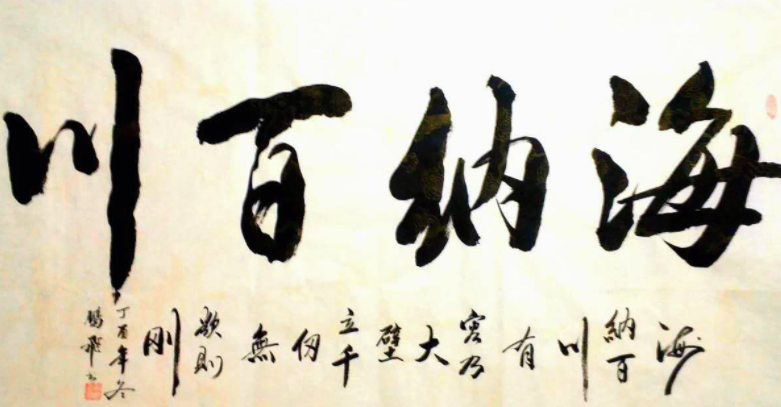 海納百川
海納百川有容乃大壁立千仞無欲則剛
丁酉年冬
鵬飛书